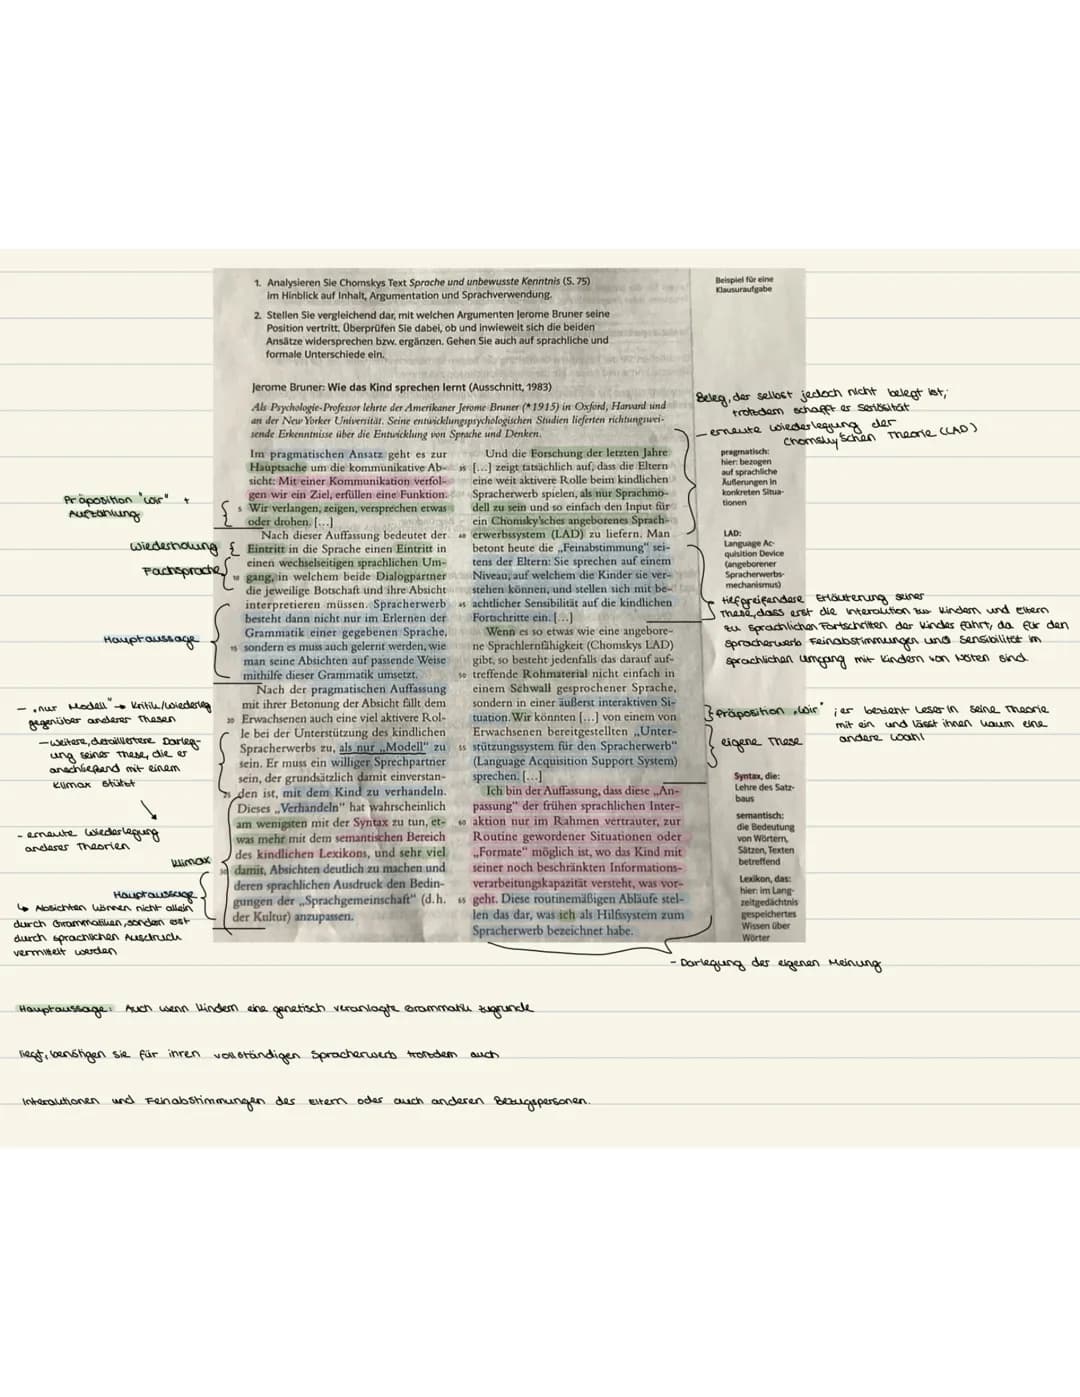 1. Analysieren Sie Chomskys Text Sprache und unbewusste Kenntnis (S. 75)
im Hinblick auf Inhalt, Argumentation und Sprachverwendung.
2. Stellen Sie vergleichend dar, mit welchen Argumenten Jerome Bruner seine
Position vertritt. Überprüfen Sie dabei, ob und inwieweit sich die beiden
Ansätze widersprechen bzw. ergänzen. Gehen Sie auch auf sprachliche und
formale Unterschiede ein.
Beispiel für eine
Klausuraufgabe
Jerome Bruner: Wie das Kind sprechen lernt (Ausschnitt, 1983)
Als Psychologie-Professor lehrte der Amerikaner Jerome Bruner (*1915) in Oxford, Harvard und
an der New Yorker Universität. Seine entwicklungspsychologischen Studien lieferten richtungswei-
sende Erkenntnisse über die Entwicklung von Sprache und Denken.
Im pragmatischen Ansatz geht es zur
Hauptsache um die kommunikative Ab-
sicht: Mit einer Kommunikation verfol-
gen wir ein Ziel, erfüllen eine Funktion.
5 Wir verlangen, zeigen, versprechen etwas
oder drohen. [...]
Nach dieser Auffassung bedeutet der
Eintritt in die Sprache einen Eintritt in
einen wechselseitigen sprachlichen Um-
10 gang, in welchem beide Dialogpartner
die jeweilige Botschaft und ihre Absicht
interpretieren müssen. Spracherwerb
besteht dann nicht nur im Erlernen der
Grammatik einer gegebenen Sprache,
15 sondern es muss auch gelernt werden, wie
man seine Absichten auf passende Weise
mithilfe dieser Grammatik umsetzt.
Nach der pragmatischen Auffassung
mit ihrer Betonung der Absicht fällt dem
20 Erwachsenen auch eine viel aktivere Rol-
le bei der Unterstützung des kindlichen
Spracherwerbs zu, als nur „Modell" zu
sein. Er muss ein williger Sprechpartner
sein, der grundsätzlich damit einverstan-
25 den ist, mit dem Kind zu verhandeln.
Dieses „Verhandeln" hat wahrscheinlich
am wenigsten mit der Syntax zu tun, et-
was mehr mit dem semantischen Bereich
des kindlichen Lexikons, und sehr viel
30 damit, Absichten deutlich zu machen und
deren sprachlichen Ausdruck den Bedin-
gungen der „Sprachgemeinschaft" (d.h.
der Kultur) anzupassen.
Und die Forschung der letzten Jahre
35 [...] zeigt tatsächlich auf, dass die Eltern
eine weit aktivere Rolle beim kindlichen
Spracherwerb spielen, als nur Sprachmo-
dell zu sein und so einfach den Input für
ein Chomsky'sches angeborenes Sprach-
40 erwerbssystem (LAD) zu liefern. Man
betont heute die „Feinabstimmung" sei-
tens der Eltern: Sie sprechen auf einem
Niveau, auf welchem die Kinder sie ver-
stehen können, und stellen sich mit be-
45 achtlicher Sensibilität auf die kindlichen
Fortschritte ein. [...]
Wenn es so etwas wie eine angebore-
ne Sprachlernfähigkeit (Chomskys LAD)
gibt, so besteht jedenfalls das darauf auf-
50 treffende Rohmaterial nicht einfach in
einem Schwall gesprochener Sprache,
sondern in einer äußerst interaktiven Si-
tuation. Wir könnten [...] von einem von
Erwachsenen bereitgestellten „Unter-
55 stützungssystem für den Spracherwerb"
(Language Acquisition Support System)
sprechen. [...]
Ich bin der Auffassung, dass diese „An-
passung" der frühen sprachlichen Inter-
60 aktion nur im Rahmen vertrauter, zur
Routine gewordener Situationen oder
„Formate" möglich ist, wo das Kind mit
seiner noch beschränkten Informations-
verarbeitungskapazität versteht, was vor-
65 geht. Diese routinemäßigen Abläufe stel-
len das dar, was ich als Hilfssystem zum
Spracherwerb bezeichnet habe.
pragmatisch:
hier: bezogen
auf sprachliche
Äußerungen in
konkreten Situa-
tionen
LAD:
Language Ac-
quisition Device
(angeborener
Spracherwerbs-
mechanismus)
Syntax, die:
Lehre des Satz-
baus
semantisch:
die Bedeutung
von Wörtern,
Sätzen, Texten
betreffend
Lexikon, das:
hier: im Lang-
zeitgedächtnis
gespeichertes
Wissen über
Wörter
Präposition "wir" +
Aufzählung
Wiederholung
Fachsprache
Hauptaussage
- „nur Modell" → Kritik/Wiederleg
gegenüber anderer Thesen
- weitere, detailliertere Darleg-
ung seiner These, die er
anschließend mit einem
Klimax stützt
- erneute Wiederlegung
anderer Theorien
Klimax
Hauptaussage
↳ Absichten können nicht allein
durch Grammatiken, sondern erst
durch sprachlichen Ausdruck
vermittelt werden
Beleg, der selbst jedoch nicht belegt ist;
trotzdem schafft er Seriösität
- erneute Wiederlegung der
Chomsky'schen Theorie (LAD)
- tiefgreifendere Erläuterung seiner
These, dass erst die Interaktion zw. Kindern und Eltern
zu sprachlichen Fortschritten der Kinder führt, da für den
Spracherwerb Feinabstimmungen und Sensibilität im
sprachlichen Umgang mit Kindern von Nöten sind
Präposition „wir" ; er bezieht Leser:in seine Theorie
mit ein und lässt ihnen kaum eine
andere Wahl
eigene These
- Darlegung der eigenen Meinung
Hauptaussage: Auch wenn Kindern eine genetisch veranlagte Grammatik zugrunde
liegt, benötigen sie für ihren vollständigen Spracherwerb trotzdem auch
Interaktionen und Feinabstimmungen der Eltern oder auch anderen Bezugspersonen.